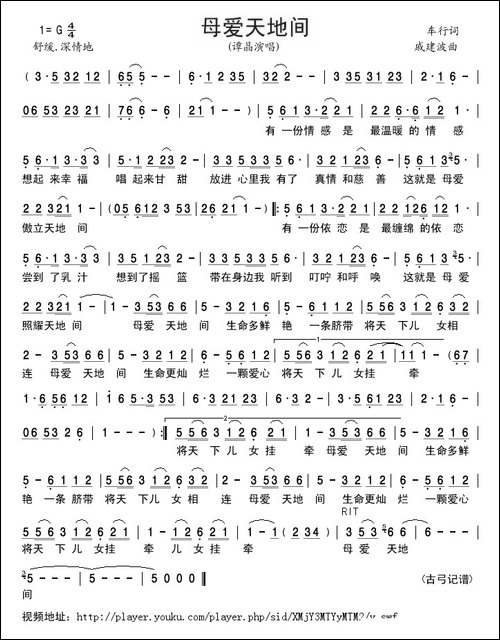 母爱天地间
1=G 4/4
车行词
舒缓.深情地
(谭晶演唱)
戚建波曲
(3·5 32 12 | 65 5 - - | 6·1 2 35 | 32 2 - - | 3 35 31 35 | 2·3 216 |
06 53 23 21 | 76 6 - 6 | 5 - - - ) | 5 61 3·2 21 | 2 26 6·1 2 |
有一份情感是 最温暖的情感
5 6·1 3·3 3 | 5·1 2 23 3 | 3 35 31 35 | 2·3 21 6 | 5 61 3 5· |
想起来幸福 唱起来甘甜 放进心里我有了 真情和慈善 这就是母爱
2 2 321 1 - | (05 6 12 3 53 | 26 21 1 - ) ‖: 5 61 3·2 21 | 2 2 126 12 |
傲立天地间 有一份依恋是 最缠绵的依恋
5 6·1 3·3 3 | 5·1 2 23 3 | 3 35 31 35 | 2·3 21 6 | 5 61 3 5· |
尝到了乳汁 想到了摇篮 带在身边我听到 叮咛和呼唤 这就是母爱
2 2 321 1 - | 1 - 3 53 66 | 5 - 3 2 12 | 6 - 5 6 12 | 5 56 3 12 6 |
照耀天地间 母爱天地间 生命多鲜艳 一条脐带 将天下儿女相
2 - 3 53 66 | 5 - 3 2 12 | 6 - 5 6 12 | 5 56 3 12 6 21 | 1 1 1 - (67 |
1
连 母爱天地间 生命更灿烂 一颗爱心 将天下儿女挂 牵
1·6 56 12 | 3·5 61 23 | 5·6 53 51 | 6·5 35 61 23 | 2·1 6 - |
06 53 2 6 | 1 - - - ) :‖ 5 56 3 12 6 21 | 1 - 3 53 66 | 5 - 3 2 12 |
2
将天下儿女挂 牵 母爱天地间 生命多鲜
6 - 5 6 12 | 5 56 3 12 6 | 2 - 3 53 66 | 5 - 3 2 12 | 6 - 5 6 12 |
艳 一条脐带 将天下儿女相 连 母爱天地间 生命更灿烂 一颗爱心
RIT
5 56 3 12 6 21 | 1 - 12 6 21 | 1 - - ( 2 34 ) | 3 53 5 66 | 6 - - - |
将天下儿女挂 牵 儿女挂 牵 母爱天地
5 - - - | 5 - - - | 5 - - - ‖
(古弓记谱)
间
视频地址: http://player.youku.com/player.php/sid/XMjY3MTYyMTM